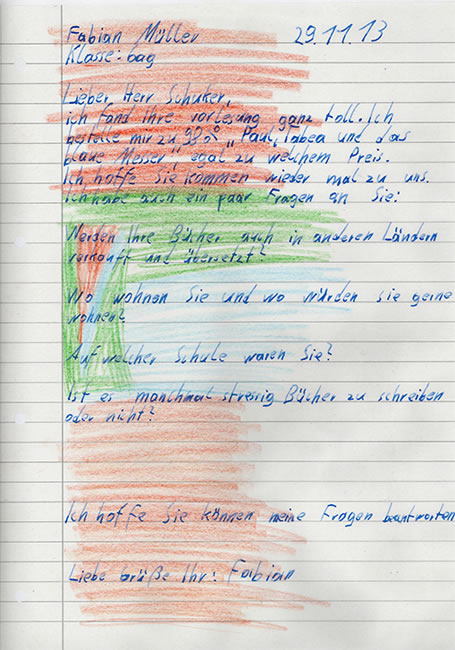 Fabian Müller 29.11.13
Klasse: 6ag
Lieber Herr Schuker,
ich fand ihre vorlesung ganz toll. Ich
bestelle mir zu 99% „Paul, Tabea und das
blaue Messer", egal zu welchem Preis.
Ich hoffe Sie kommen wieder mal zu uns.
Ich habe auch ein paar Fragen an Sie:
Werden Ihre Bücher auch in anderen Ländern
verkauft und übersetzt?
Wo wohnen Sie und wo würden sie gerne
wohnen?
Auf welcher Schule waren Sie?
Ist es manchmal stressig Bücher zu schreiben
oder nicht?
Ich hoffe Sie können meine Fragen beantworten
Liebe Grüße Ihr: Fabian